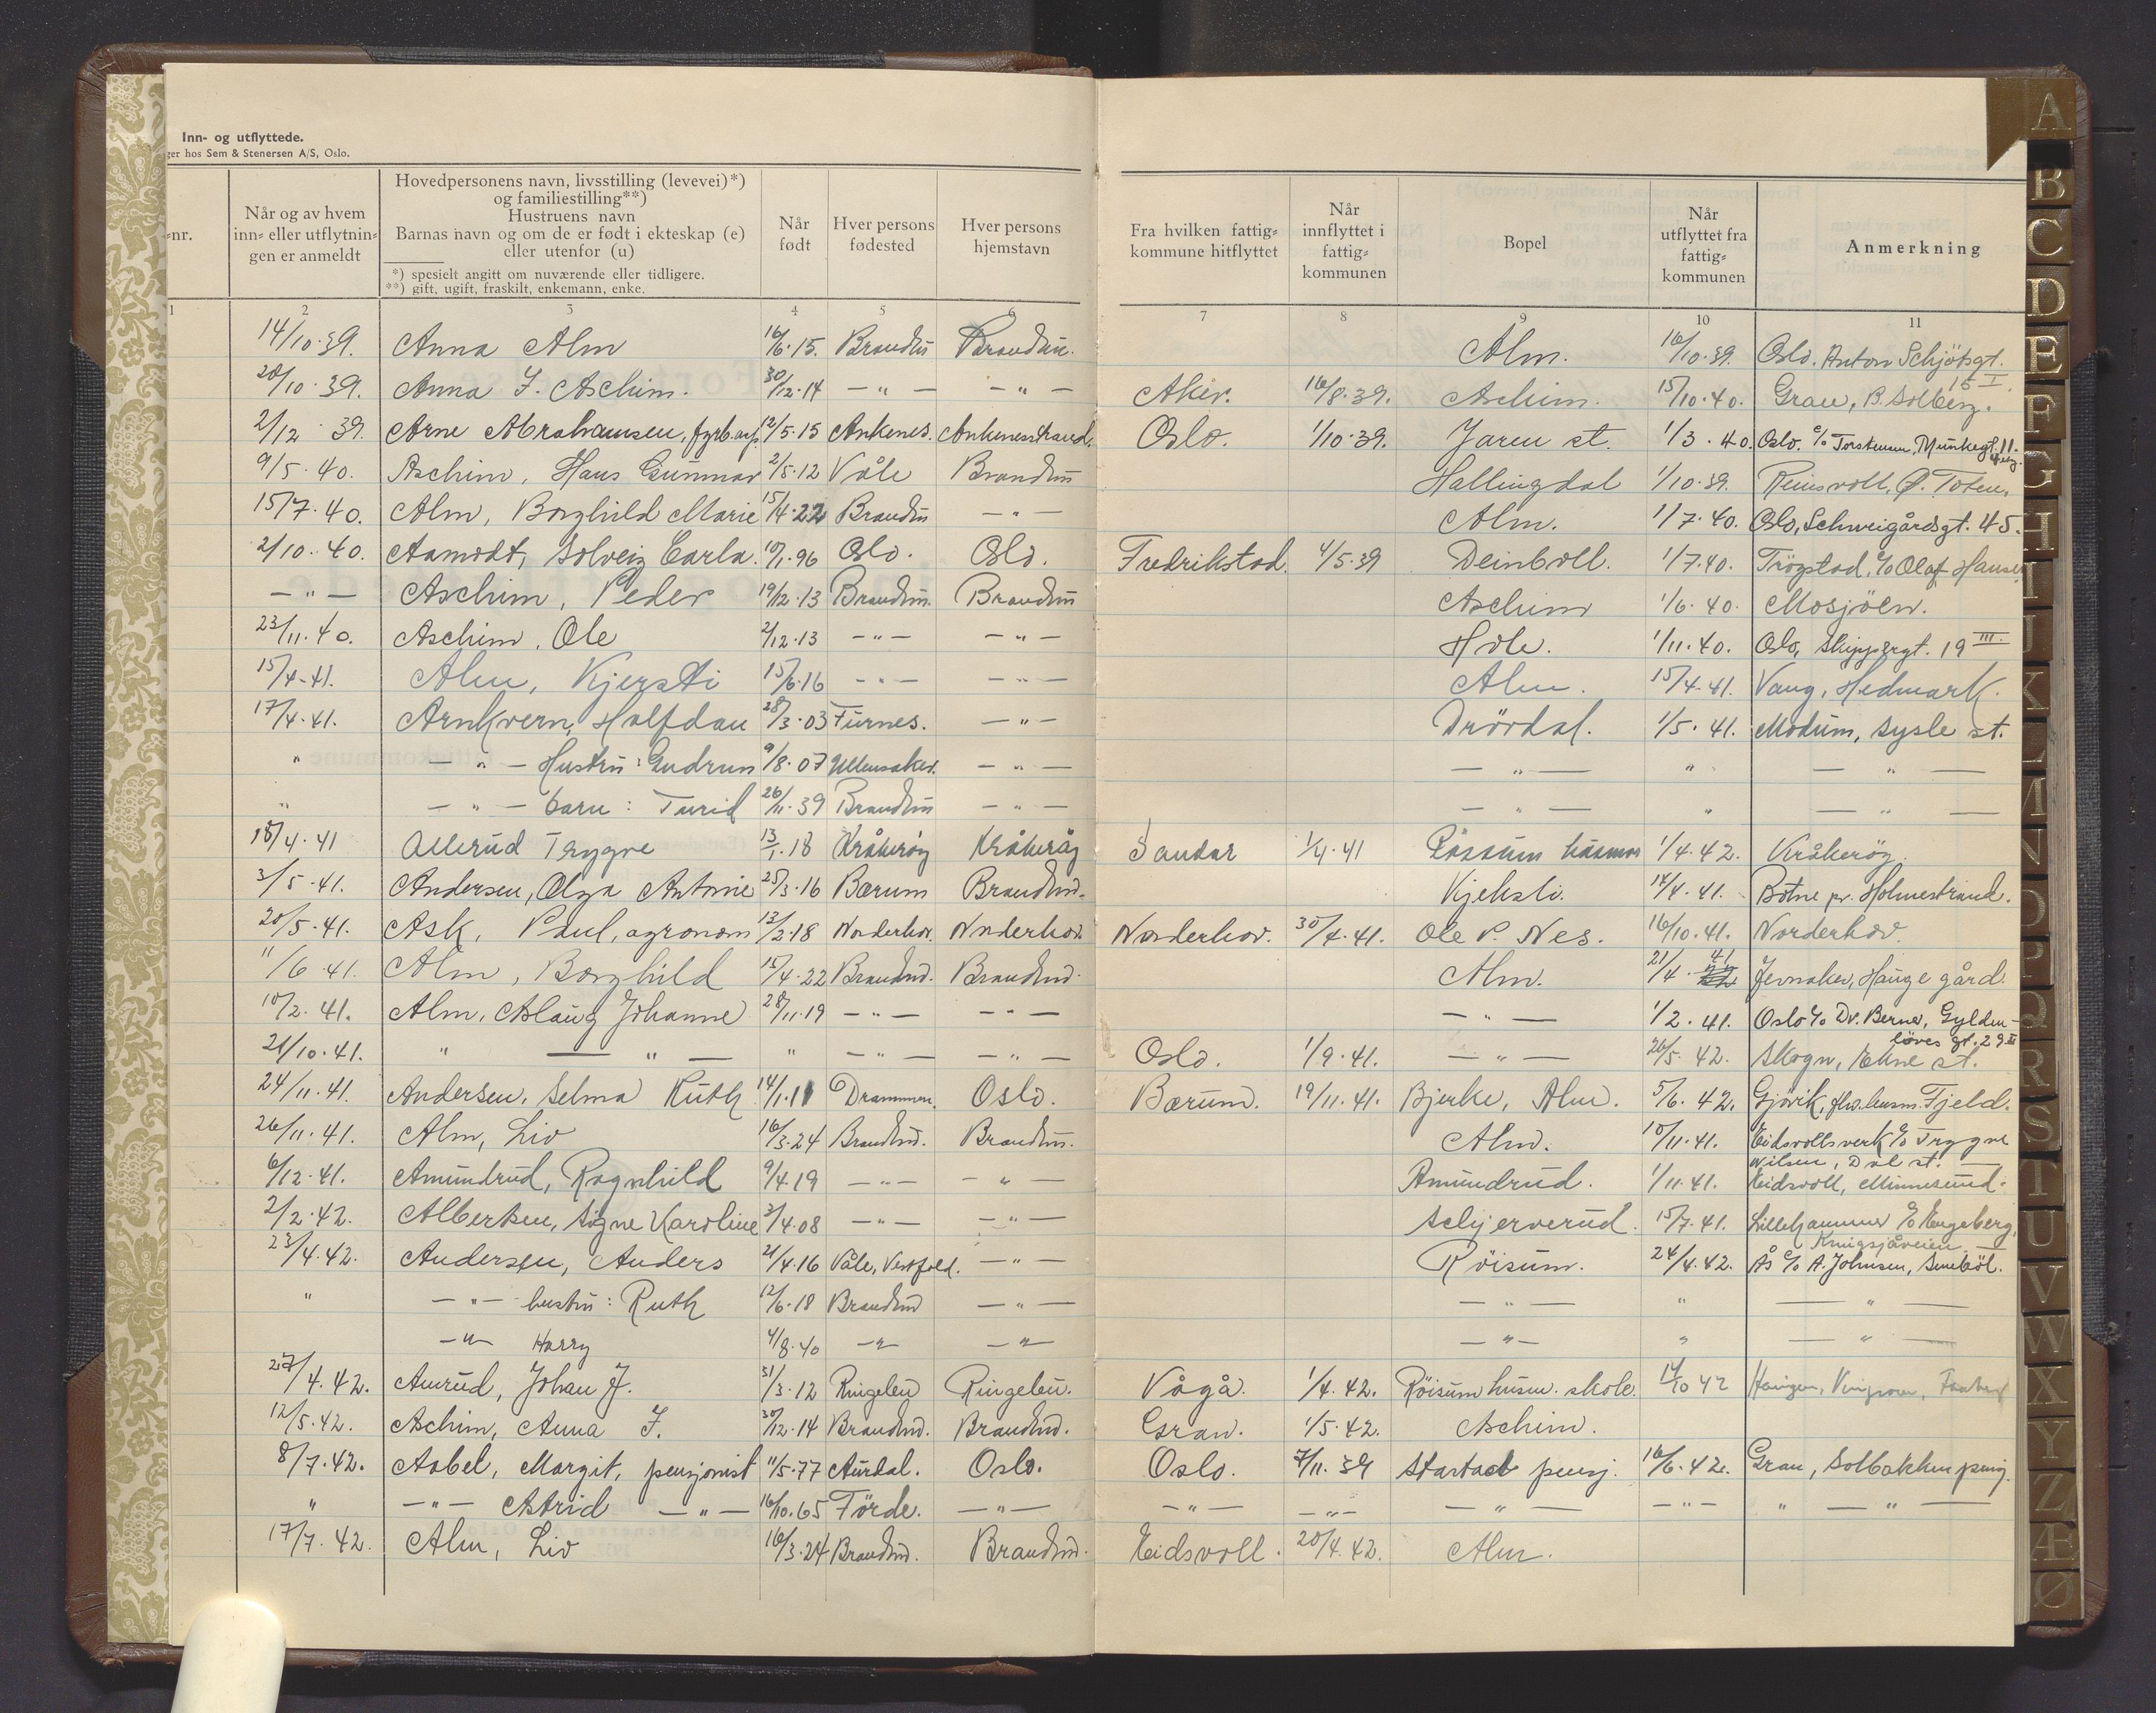 Inn- og utflyttede.
ger hos Sem & Stenersen A/S, Oslo.
-nr.
Når og av hvem
inn- eller utflytnin-
gen er anmeldt
Hovedpersonens navn, livsstilling (levevei)*)
og familiestilling**)
Hustruens navn
Barnas navn og om de er født i ekteskap (e)
eller utenfor (u)
*) spesielt angitt om nuværende eller tidligere.
**) gift, ugift, fraskilt, enkemann, enke.
Når
født
Hver persons
fødested
Hver persons
hjemstavn
Fra hvilken fattig-
kommune hitflyttet
Når
innflyttet i
fattig-
kommunen
Bopel
Når
utflyttet fra
fattig-
kommunen
Anmerkning
1 2 3 4 5 6 7 8 9 10 11
14/10.39. Anna Alm 16/6.15. Brandbu Brandbu. Alm. 16/10.39. Oslo. Anton Schjötsgt. 15 I.
20/10.39. Anna J. Aschim. 30/12.14 — " — — " — Aker. 16/8.39. Aschim. 15/10.40. Gran, B. Solberg.
2/12 39. Arne Abrahamsen, fyrb.arb. 12/5.15 Ankenes. Ankenesstrand. Oslo. 1/10.39. Jaren st. 1/3.40. Oslo. c/o Torstensen, Munkegt. 11.
9/5.40. Aschim, Hans Gunnar 2/5.12 Våle Brandbu Hallingdal 1/10.39. Reinsvoll, Ø. Toten.
15/7.40. Alm, Borghild Marie 15/4.22 Brandbu — " — Alm. 1/7.40. Oslo, Schweigårdsgt. 45.
2/10.40. Aamodt, Solveig Carla. 10/1.96 Oslo. Oslo. Fredrikstad. 4/5.39 Deinboll. 1/7.40. Trögstad, c/o Olaf Hansen
— " — Aschim, Peder 19/12.13 Brandbu. Brandbu Aschim 1/6.40. Mosjöen.
23/11.40. Aschim, Ole 2/12.13 — " — — " — Hole. 1/11.40. Oslo, Skippergt. 19 III.
15/4.41. Alm, Kjersti 15/6.16 — " — — " — Alm. 15/4.41. Vang, Hedmark.
17/4.41. Arnkvern, Halfdan 28/3.03 Furnes. — " — Drövdal. 1/5.41. Modum, Sysle st.
" — " — Hustru: Gudrun 9/8.07 Ullensaker. — " — — " — " — " —
" — " — barn: Turid 26/11.39 Brandbu — " — — " — " — " —
18/4.41 Allerud Trygve 13/1.18 Kråkeröy Kråkeröy Sandar 1/4.41 1/4.42. Kråkeröy.
3/5.41. Andersen, Olga Antonie 25/3.16 Bærum Brandbu. Kjeksli. 14/4.41. Botne pr. Holmestrand.
20/5.41. Ask, Paul, agronom 13/2.18 Norderhov. Norderhov. Norderhov. 30/4.41. Ole P. Nes. 16/10.41. Norderhov.
11/6.41. Alm, Borghild 15/4.22 Brandbu. Brandbu. Alm. 21/4.41 Jevnaker, Hauge gård.
10/2.41. Alm, Aslaug Johanne 28/11.19 — " — — " — — " — 1/2.41. Oslo c/o Dr. Berner, Gylden-
löves gt. 29 II
21/10.41. " — " — " — " — — " — Oslo. 1/9.41. — " — 26/5.42. Skogn, Ekne st.
24/11.41. Andersen, Selma Ruth 14/1.11 Drammen. Oslo. Bærum. 19/11.41. Bjerke, Alm. 5/6.42. Gjövik, Fjeld.
26/11.41. Alm, Liv 16/3.24 Brandbu. Brandbu. Alm. 10/11.41. Eidsvollsverk c/o Trygve
Nilsen, Dal st.
6/12.41. Amundrud, Ragnhild 9/4.19 — " — — " — Amundrud. 1/11.41. Eidsvoll, Minnesund.
2/2.42. Albertsen, Signe Karoline 3/4.08 — " — — " — Schjerverud. 15/7.41. Lillehammer c/o Engeberg,
23/4.42. Andersen, Anders 21/4.16 Våle, Vestfold. — " — Röisum. 24/4.42. Ås c/o A. Johnsen,
" — " — hustru: Ruth 12/6.18 Brandbu — " — — " — " — " —
— " — Harry 4/8.40 — " — — " — — " — " — " —
27/4.42. Amrud, Johan J. 31/3.12 Ringebu Ringebu. Vågå. 1/4.42. Röisum husm. skole. 12/10 42
12/5.42. Aschim, Anna J. 30/12.14 Brandbu. Brandbu. Gran. 1/5.42. Aschim.
8/7.42. Aabel, Margit, pensjonist 11/5.77 Aurdal. Oslo. Oslo. 7/11.39 Stastad pensj. 16/6.42. Gran, Solbakken pensj.
" — " — Astrid — " — 16/10.65 Förde. — " — — " — — " — — " — — " — " — " —
17/7.42. Alm, Liv 16/3.24 Brandbu. Brandbu. Eidsvoll. 20/4.42. Alm.
A
B
C
D
E
F
G
H
I
J
K
L
M
N
O
P
Q
R
S
T
U
V
W
X
Y
Z
Æ
Ø